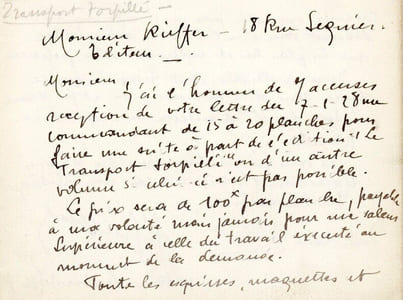 Transport torpillé —
Monsieur Kieffer — 18 Rue Seguier.
Editeur —.
Monsieur, J'ai l'honneur de J'accuser
reception de votre lettre du 7-1-28 me
commandant de 15 à 20 planches pour
faire une suite à part de l'edition "Le
Transport torpillé" ou d'un autre
volume si celui-ci n'est pas possible.
Le prix sera de 100f par planche, payable
à ma volonté mais jamais pour une valeur
Supérieure à celle du travail éxécuté au
moment de la demande.
Toute les esquisses, maquettes et